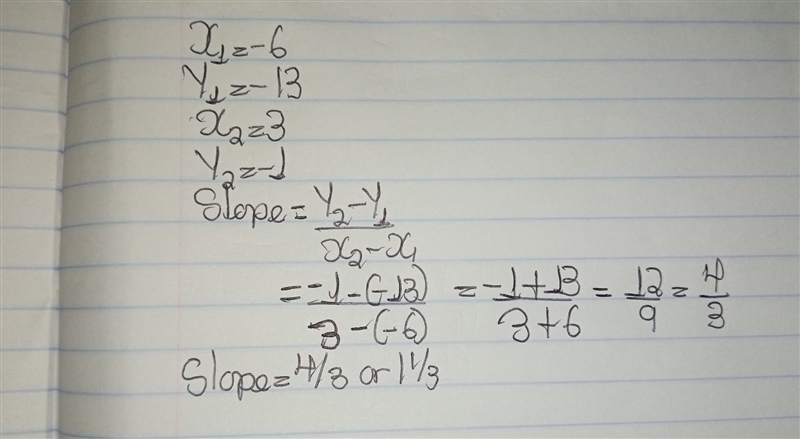 x₁=-6
Y₁=-13
x₂=3
Y₂=-1
Slope=Y₂-Y₁/x₂-x₁
=-1-(-13)/3-(-6) =-1+13/3+6=12/9=4/3
Slope=4/3 or 1 1/3